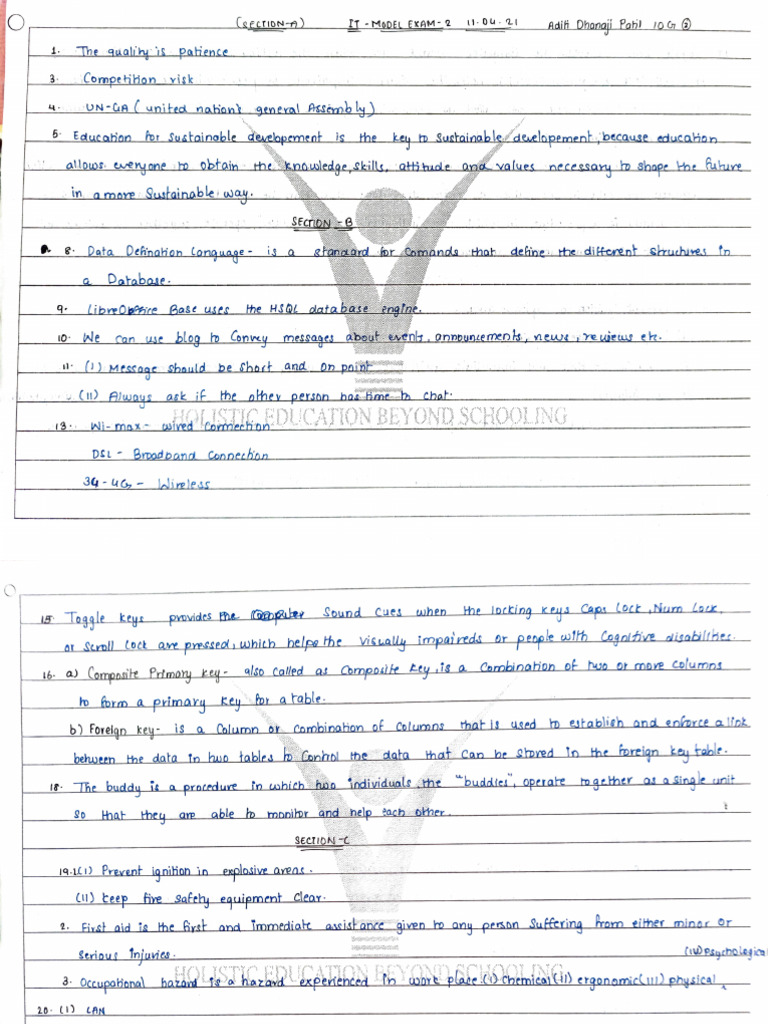 (SECTION-A) IT - MODEL EXAM - 2 11-04-21 Aditi Dhanaji Patil 10 G 2
1. The quality is patience
3. Competition risk
4. UN-GA (united nation's general Assembly)
5. Education for sustainable developement is the key to sustainable developement, because education
allows everyone to obtain the knowledge, skills, attitude and values necessary to shape the future
in a more Sustainable way.
SECTION -B
8. Data Defination Language - is a standard for comands that define the different structures in
a Database.
9. LibreOffice Base uses the HSQL database engine.
10. We can use blog to convey messages about events, announcements, news, reviews etc.
11. (i) Message should be short and on point
(ii) Always ask if the other person has time to chat.
HOLISTIC EDUCATION BEYOND SCHOOLING
13. Wi-max - wired connection
DSL - Broadband connection
3G-4G - Wireless
15. Toggle keys provides the Sound Cues when the locking keys Caps lock, Num lock,
or scroll lock are pressed, which helps the visually impaireds or people with Cognitive disabilities.
16. a) Composite Primary key - also called as Composite key, is a Combination of two or more columns
to form a primary key for a table.
b) Foreign key - is a column or combination of columns that is used to establish and enforce a link
between the data in two tables to control the data that can be stored in the foreign key table.
18. The buddy is a procedure in which two individuals, the "buddies", operate together as a single unit
so that they are able to monitor and help each other.
SECTION -C
19.1(i) Prevent ignition in explosive areas.
(ii) keep fire safety equipment clear.
2. First aid is the first and immediate assistance given to any person suffering from either minor or
serious injuries.
(iv) Psychological
3. Occupational hazard is a hazard experienced in work place (i) chemical (ii) ergonomic (iii) physical,
HOLISTIC EDUCATION BEYOND SCHOOLING
20. (i) LAN